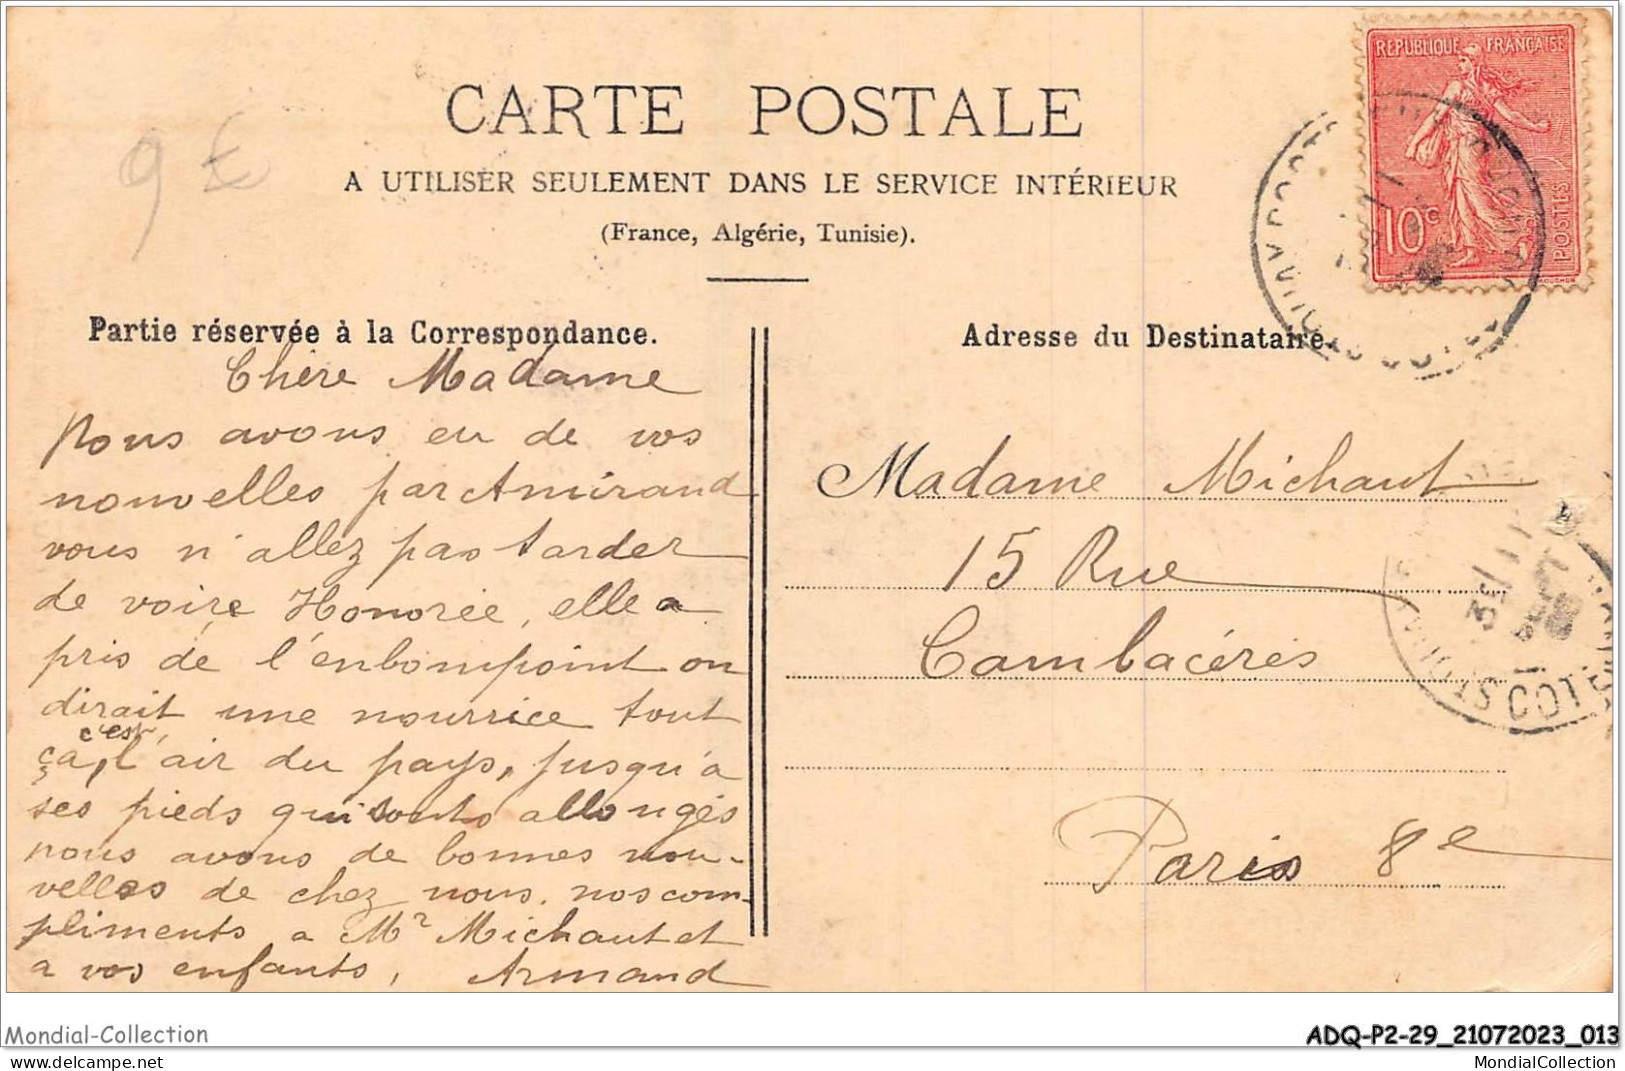 CARTE POSTALE
A UTILISER SEULEMENT DANS LE SERVICE INTÉRIEUR
(France, Algérie, Tunisie).
9 €
REPUBLIQUE FRANÇAISE
10c
POSTES
Partie réservée à la Correspondance.
Chère Madame
Nous avons eu de vos
nouvelles par Amirand
vous n'allez pas tarder
de voire Honorée, elle a
pris de l'enbompoint on
dirait une nourrice tout
ça, c'est l'air du pays, jusqu'a
ses pieds qui sonts allongés
nous avons de bonnes nou-
velles de chez nous. nos com-
pliments a Mr Michaut et
a vos enfants, Armand
Adresse du Destinataire.
Madame Michaut
15 Rue
Cambacérès
Paris 8e
Mondial-Collection
ADQ-P2-29_21072023_013
MondialCollection